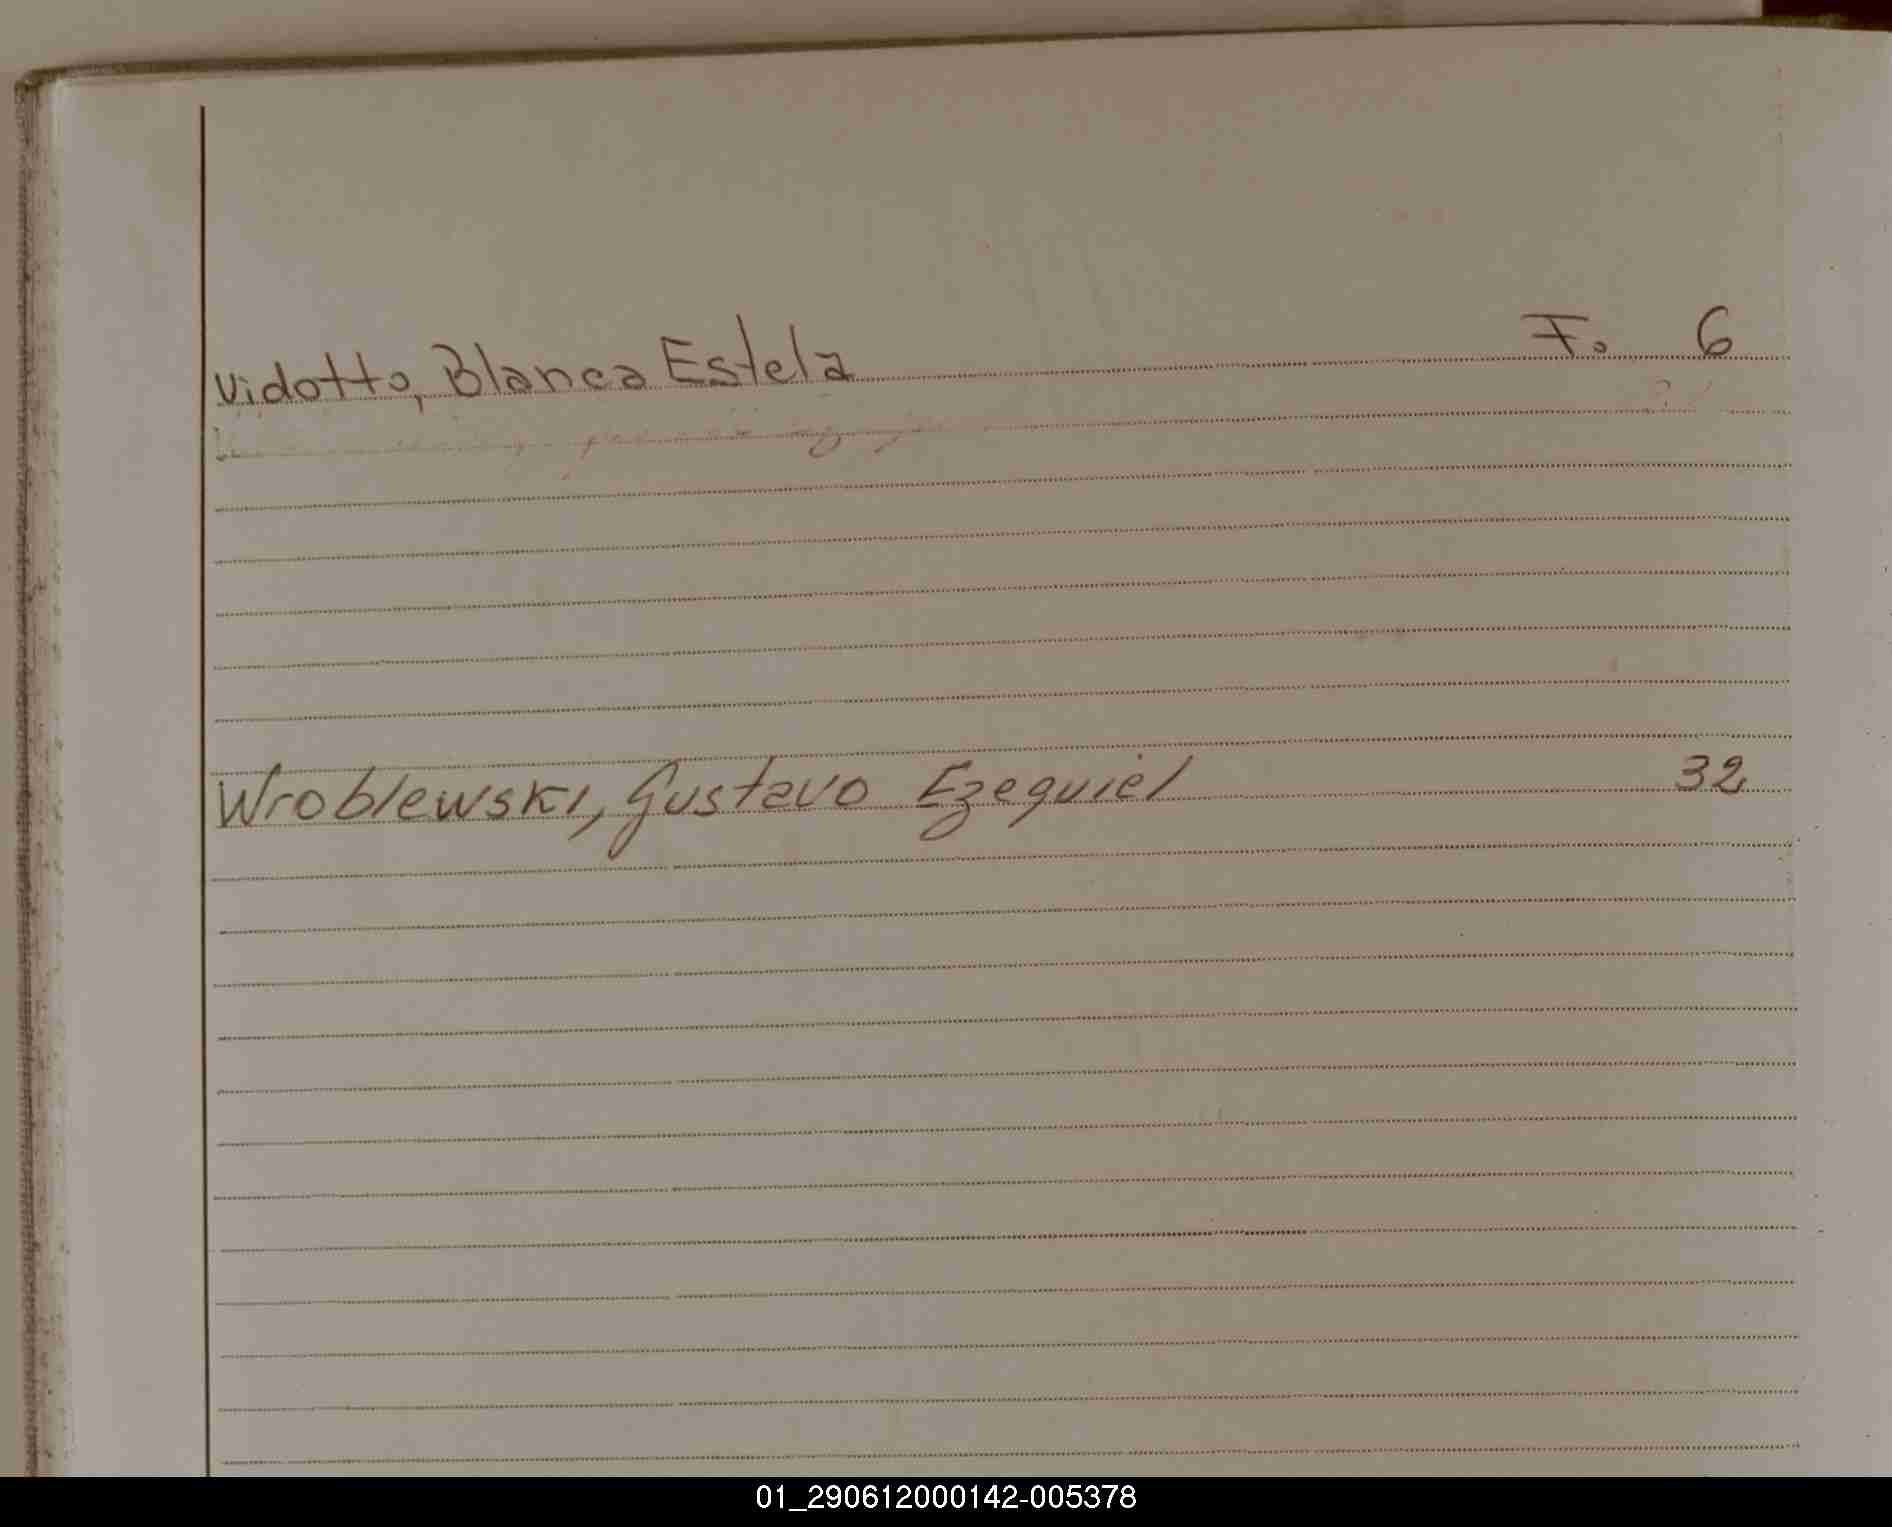 Vidotto, Blanca Estela F. 6
Wroblewski, Gustavo Ezequiel 32
01_290612000142-005378